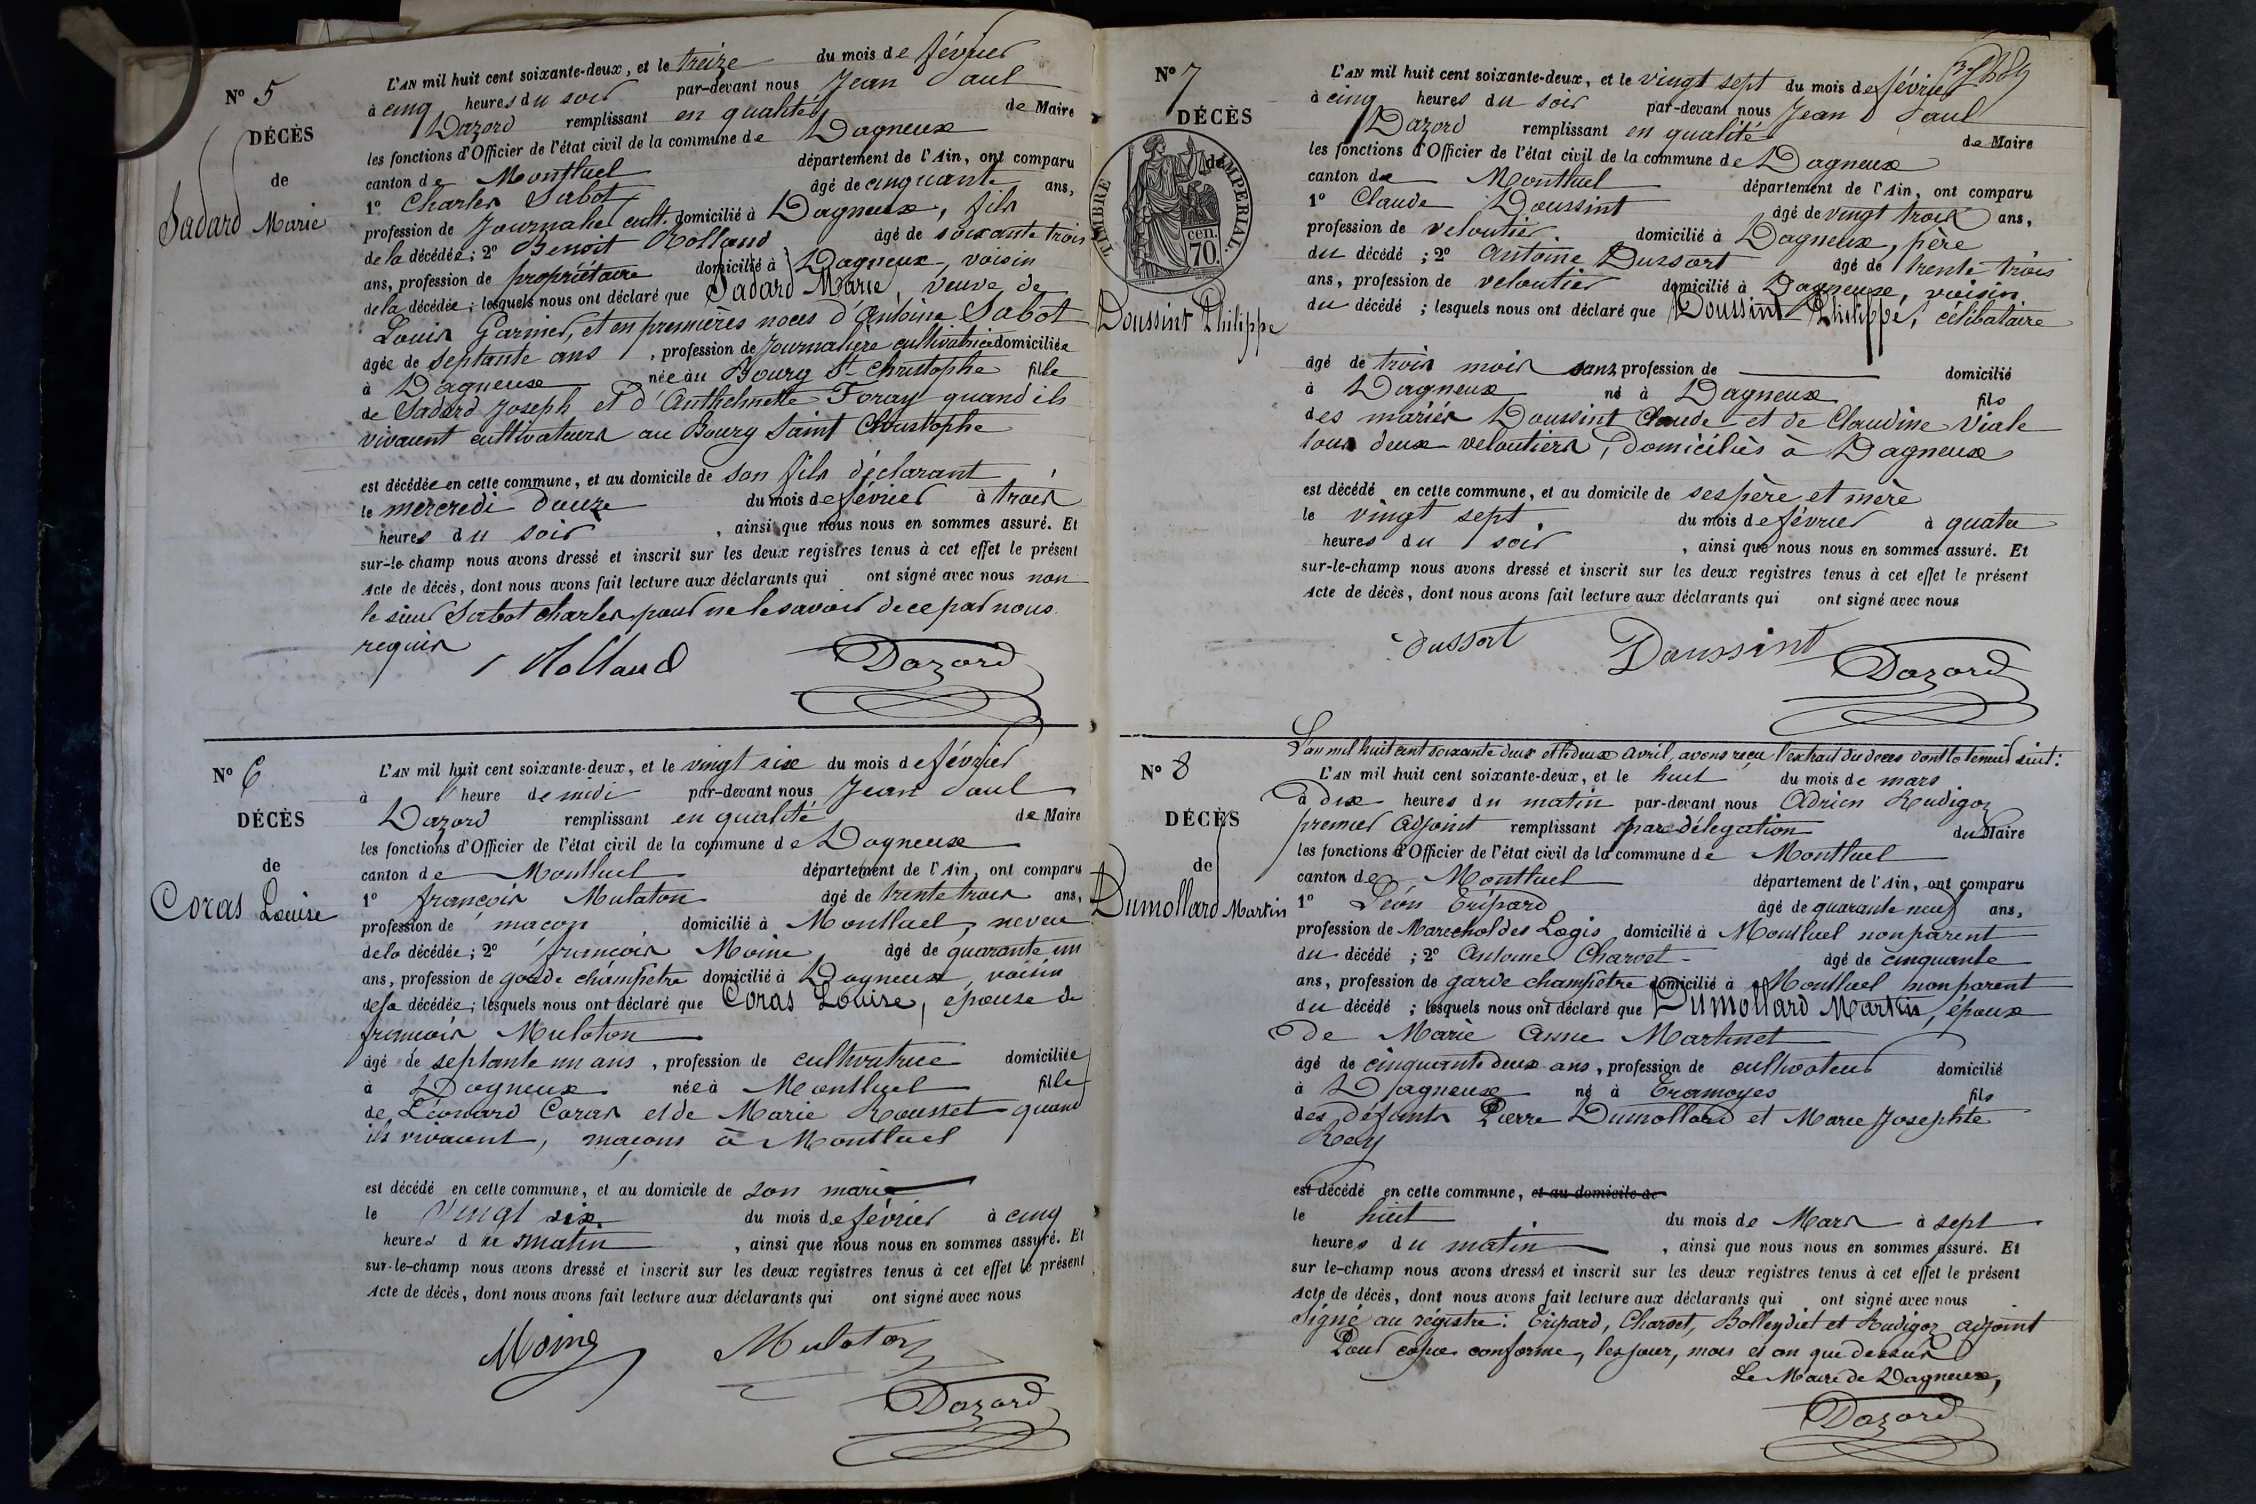 N° 5
DÉCÈS
de
Sadard Marie
L'AN mil huit cent soixante-deux, et le treize du mois de février
à cinq heures du soir par-devant nous Jean Paul
Dazord remplissant en qualité de Maire
les fonctions d'Officier de l'état civil de la commune de Dagneux
canton de Montluel département de l'Ain, ont comparu
1° Charles Sabot âgé de cinquante ans,
profession de Journalier cult. domicilié à Dagneux, fils
de la décédée; 2° Benoit Rolland âgé de soixante trois
ans, profession de propriétaire domicilié à Dagneux, voisin
de la décédée; lesquels nous ont déclaré que Sadard Marie, veuve de
Louis Garnier, et en premières noces d'Antoine Sabot
âgée de septante ans, profession de Journalière cultivatrice domiciliée
à Dagneux née au Bourg St Christophe fille
de Sadard Joseph et d'Anthelmette Foray quand ils
vivaient cultivateurs au Bourg Saint Christophe
est décédée en cette commune, et au domicile de son fils déclarant,
le mercredi douze du mois de février à trois
heures du soir, ainsi que nous nous en sommes assuré. Et
sur-le-champ nous avons dressé et inscrit sur les deux registres tenus à cet effet le présent
Acte de décès, dont nous avons fait lecture aux déclarants qui ont signé avec nous non
le sieur Sabot Charles pour ne le savoir de ce par nous
requis
Rolland Dazord
N° 6
DÉCÈS
de
Coras Louise
L'AN mil huit cent soixante-deux, et le vingt six du mois de février
à heure de midi par-devant nous Jean Paul
Dazord remplissant en qualité de Maire
les fonctions d'Officier de l'état civil de la commune de Dagneux
canton de Montluel département de l'Ain, ont comparu
1° françois Mulaton âgé de trente trois ans,
profession de maçon domicilié à Montluel, neveu
de la décédée; 2° françois Moine âgé de quarante un
ans, profession de garde champêtre domicilié à Dagneux, voisin
de la décédée; lesquels nous ont déclaré que Coras Louise, épouse de
françois Mulaton
âgé de septante un ans, profession de cultivatrice domiciliée
à Dagneux née à Montluel fille
de Léonard Coras et de Marie Rousset quand
ils vivaient, maçons à Montluel
est décédé en cette commune, et au domicile de son marie
le vingt six du mois de février à cinq
heures du matin, ainsi que nous nous en sommes assuré. Et
sur-le-champ nous avons dressé et inscrit sur les deux registres tenus à cet effet le présent
Acte de décès, dont nous avons fait lecture aux déclarants qui ont signé avec nous
Moine Mulaton
Dazord
N° 7
DÉCÈS
de
TIMBRE IMPÉRIAL.
70. cen.
Doussint Philippe
L'AN mil huit cent soixante-deux, et le vingt sept du mois de février
à cinq heures du soir par-devant nous Jean Paul
Dazord remplissant en qualité de Maire
les fonctions d'Officier de l'état civil de la commune de Dagneux
canton de Montluel département de l'Ain, ont comparu
1° Claude Doussint âgé de vingt trois ans,
profession de veloutier domicilié à Dagneux, père
du décédé; 2° Antoine Dussort âgé de trente trois
ans, profession de veloutier domicilié à Dagneux, voisin
du décédé; lesquels nous ont déclaré que Doussint Philippe, célibataire
âgé de trois mois sans profession de domicilié
à Dagneux né à Dagneux fils
des mariés Doussint Claude et de Claudine Viale
tous deux veloutiers, domiciliés à Dagneux
est décédé en cette commune, et au domicile de ses père et mère
le vingt sept du mois de février à quatre
heures du soir, ainsi que nous nous en sommes assuré. Et
sur-le-champ nous avons dressé et inscrit sur les deux registres tenus à cet effet le présent
Acte de décès, dont nous avons fait lecture aux déclarants qui ont signé avec nous
Dussort Doussint Dazord
L'an mil huit cent soixante deux et le deux avril, avons reçu l'extrait du décès dont la teneur suit:
N° 8
DÉCÈS
de
Dumollard Martin
L'AN mil huit cent soixante-deux, et le huit du mois de mars
à dix heures du matin par-devant nous Adrien Rudigoz
premier adjoint remplissant par délégation du Maire
les fonctions d'Officier de l'état civil de la commune de Montluel
canton de Montluel département de l'Ain, ont comparu
1° Léon Tripard âgé de quarante neuf ans,
profession de Marechol des Logis domicilié à Montluel non parent
du décédé; 2° Antoine Charvet âgé de cinquante
ans, profession de garde champêtre domicilié à Montluel non parent
du décédé; lesquels nous ont déclaré que Dumollard Martin, époux
de Marie Anne Martinet
âgé de cinquante deux ans, profession de cultivateur domicilié
à Dagneux né à Tramoyes fils
des défunts Pierre Dumollard et Marie Josephte
Rey
est décédé en cette commune, et au domicile de
le huit du mois de Mars à sept
heures du matin, ainsi que nous nous en sommes assuré. Et
sur le-champ nous avons dressé et inscrit sur les deux registres tenus à cet effet le présent
Acte de décès, dont nous avons fait lecture aux déclarants qui ont signé avec nous
Signé au régistre: Tripard, Charvet, Bolleydiet et Rudigoz adjoint
Pour copie conforme, les jour, mois et an que dessus
Le Maire de Dagneux,
Dazord